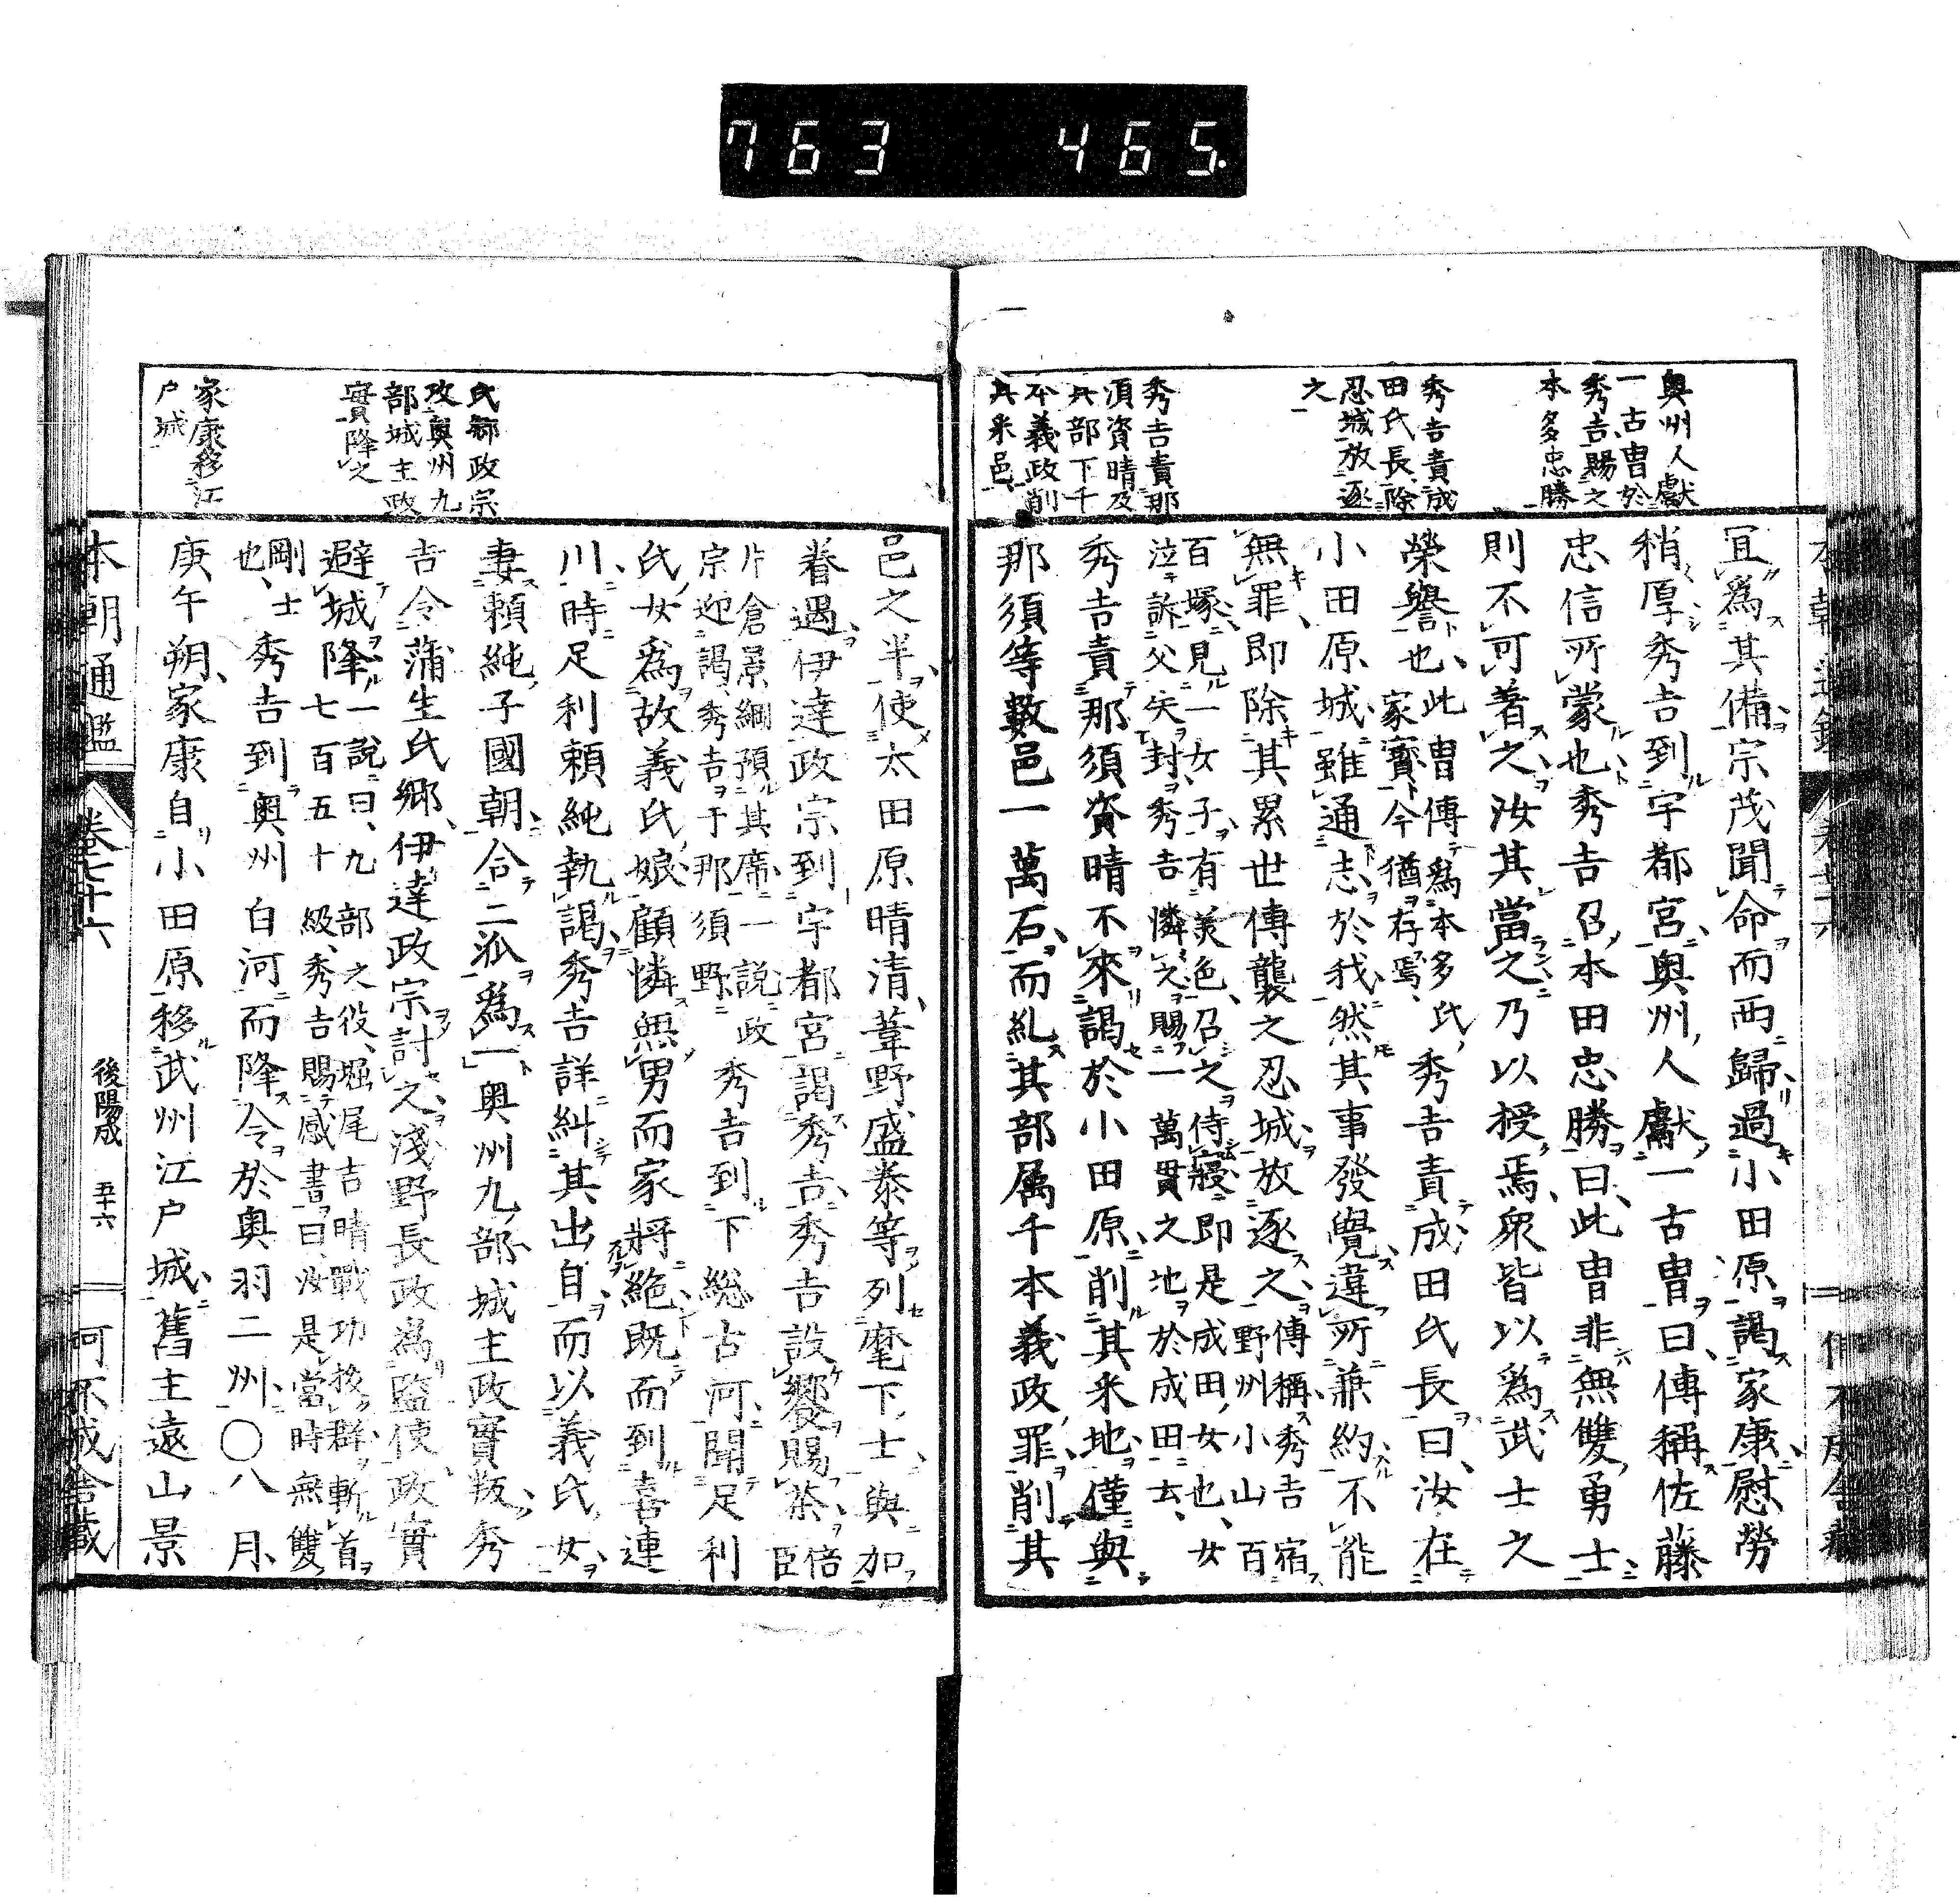 763 465.
奥州人獻
一古冑於
秀吉賜之
本多忠勝
秀吉責成
田氏長除
忍城放逐
之
秀吉責那
須資晴及
其部下千
本義政削
其釆邑
宜爲其備宗茂聞命而西歸過小田原謁家康慰勞
稍厚秀吉到宇都宮奥州人獻一古冑曰傳稱佐藤
忠信所蒙也秀吉召本田忠勝曰此冑非無雙勇士
則不可着之汝其當之乃以授焉衆皆以爲武士之
榮譽也此冑傳爲本多氏
家寳今猶存焉秀吉責成田氏長曰汝在
小田原城雖通志於我然其事發覺違所兼約不能
無罪即除其累世傳襲之忍城放逐之傳稱秀吉宿
野州小山百
百塚見一女子有美色召之侍寢即是成田女也女
泣訴父矢封秀吉憐之賜一萬貫之地於成田云
秀吉責那須資晴不來謁於小田原削其釆地僅與
那須等數邑一萬石而糺其部属千本義政罪削其
氏郷政宗
攻奥州九
部城主政
實降之
家康移江
戸城
邑之半使太田原晴清葦野盛泰等列麾下士與加
眷遇伊達政宗到宇都宮謁秀吉秀吉設饗賜茶倍
臣
片倉景綱預其席一說政
宗迎謁秀吉于那須野秀吉到下総古河聞足利
氏女爲故義氏娘顧憐無男而家將絶既而到喜連
川時足利頼純執謁秀吉詳糾其出自而以義氏女
妻頼純子國朝合二泒爲一奥州九部城主政實叛秀
吉令蒲生氏郷伊達政宗討之淺野長政為監使政實
避城降一說曰九部之役堀尾吉晴戰功抜群斬首
七百五十級秀吉賜感書曰汝是當時無雙
剛士
也秀吉到奥州白河而降令於奥羽二州〇八月
庚午朔家康自小田原移武州江戸城舊主遠山景
本朝通鑑 卷七十六 後陽成 五十六